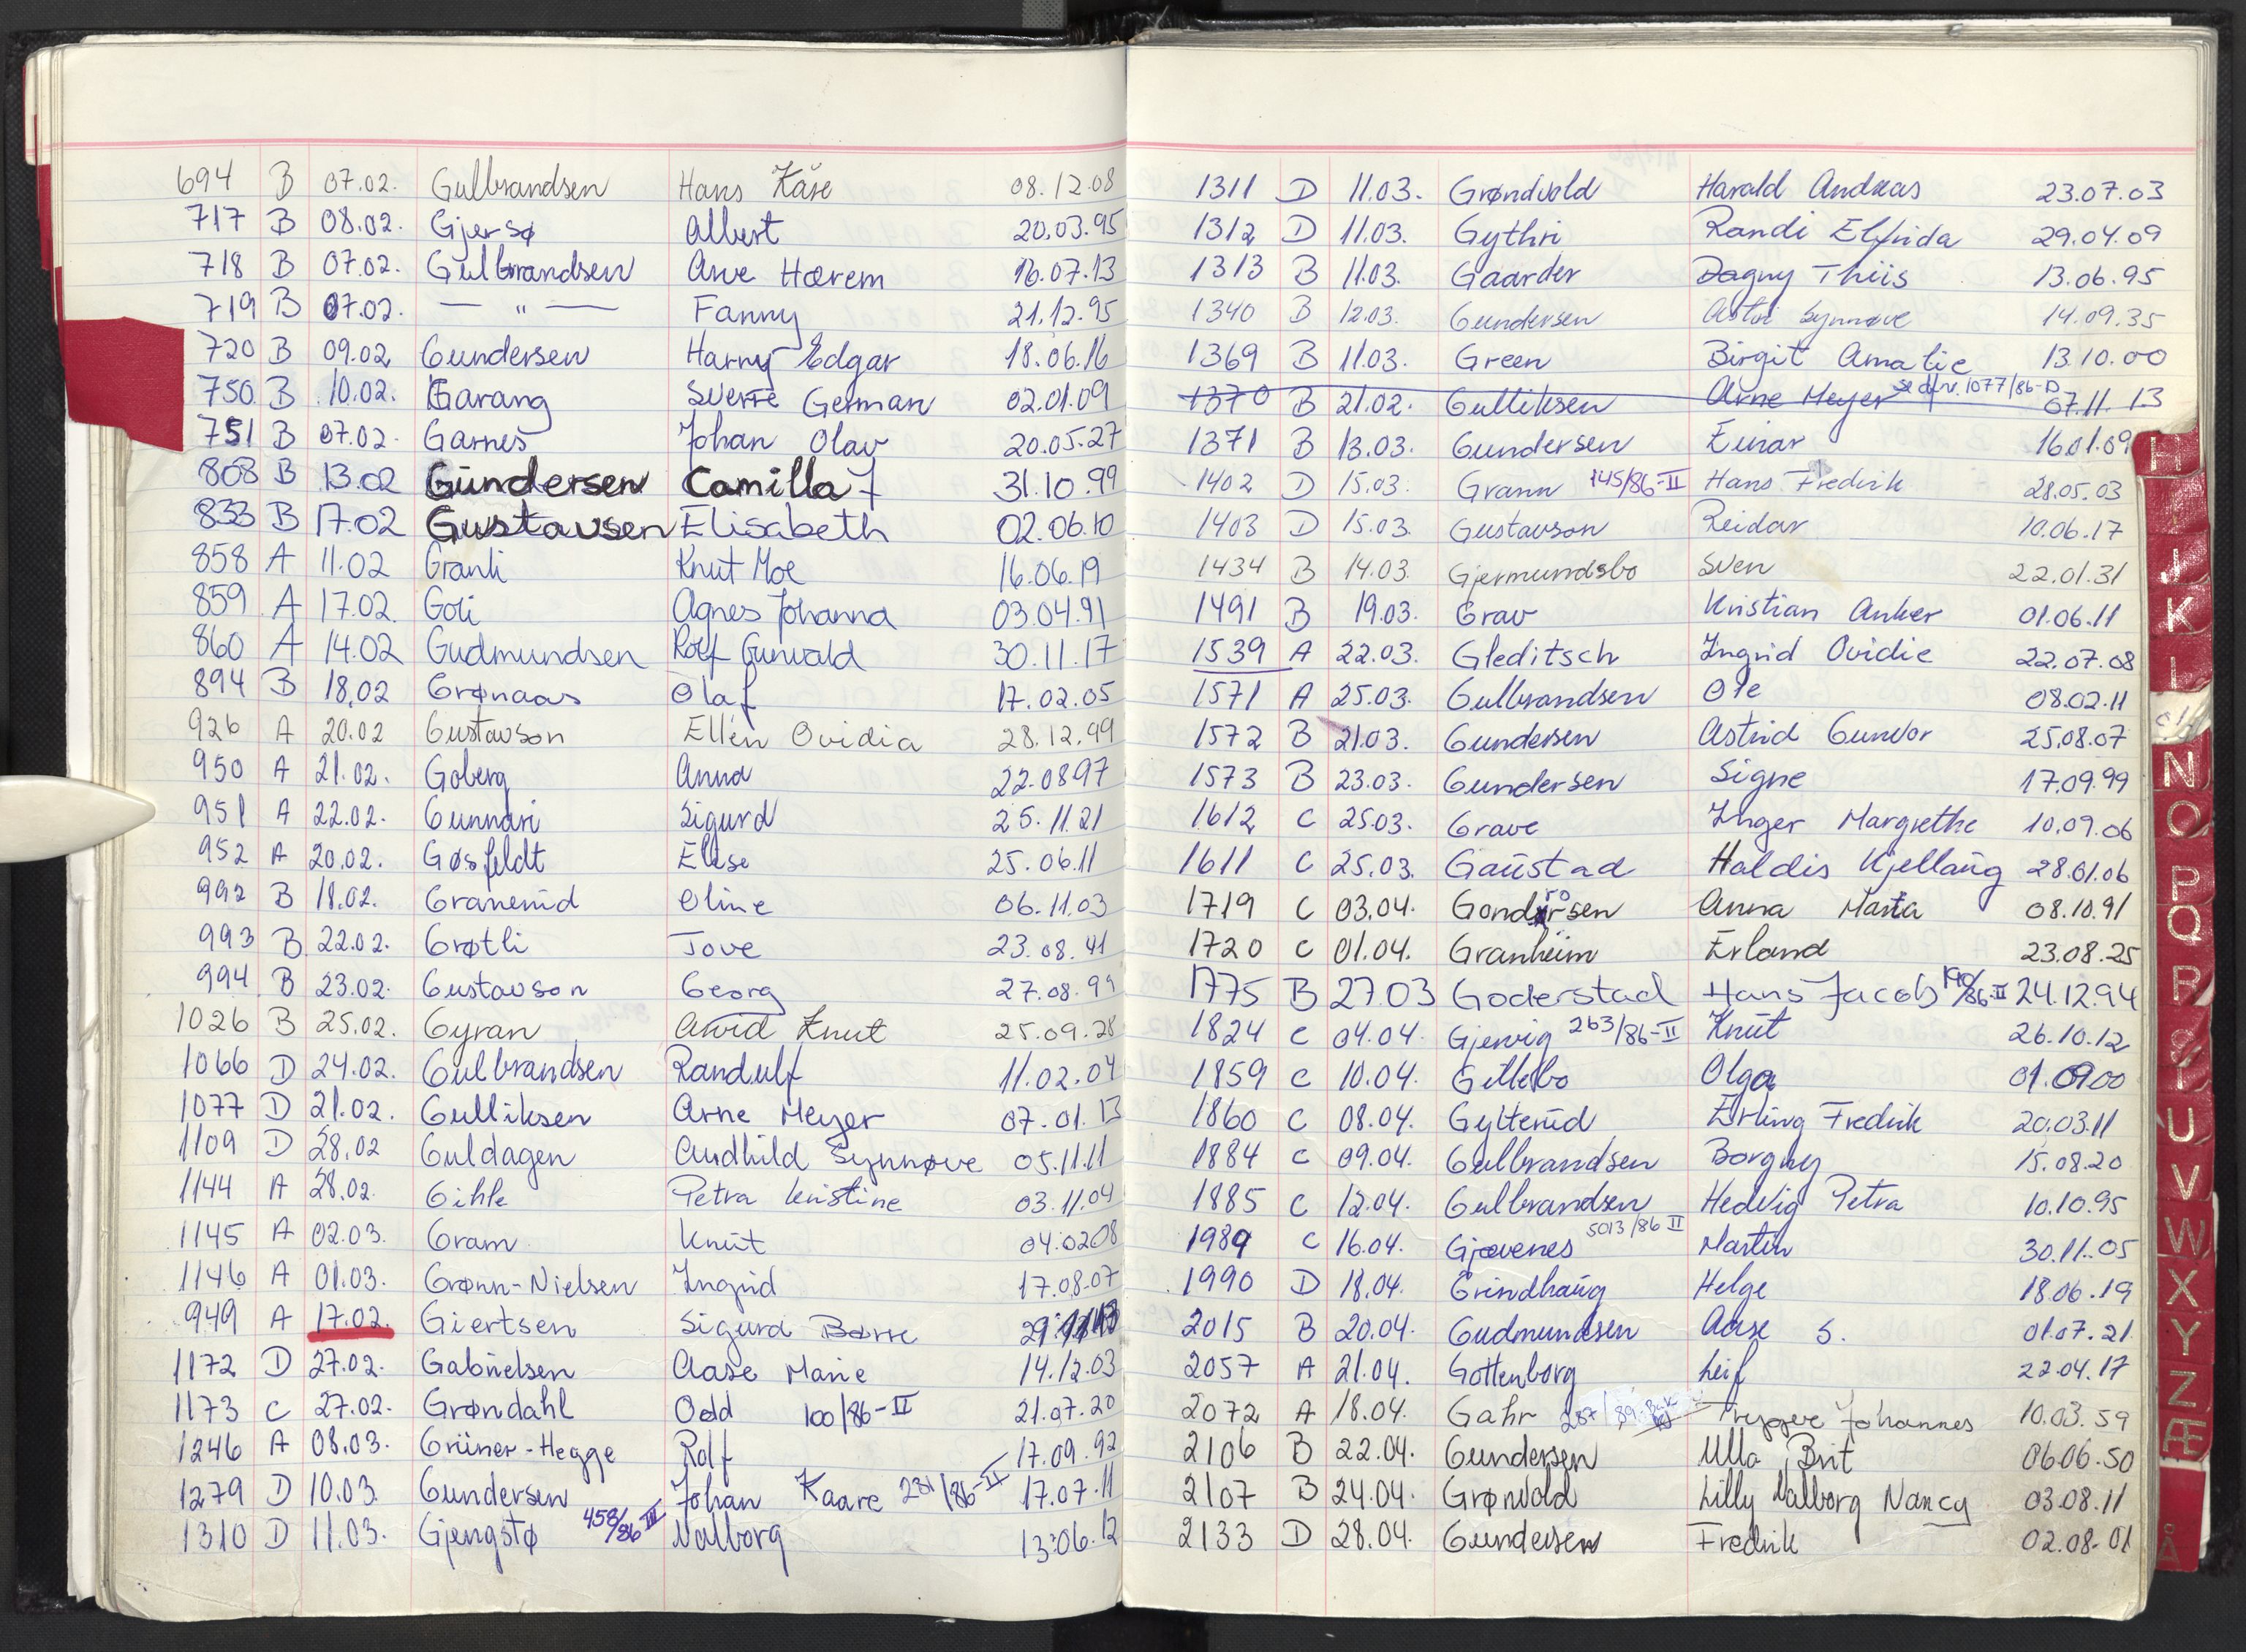 694 B 07.02. Gulbrandsen Hans Kåre 08.12.08
717 B 08.02. Gjersø Albert 20.03.95
718 B 07.02. Gulbrandsen Arve Hærem 16.07.13
719 B 07.02. — " — Fanny 21.12.95
720 B 09.02 Gundersen Harry Edgar 18.06.16
750 B 10.02. Garang Sverre German 02.01.09
751 B 07.02. Garnes Johan Olav 20.05.27
808 B 13.02 Gundersen Camilla J 31.10.99
833 B 17.02 Gustavsen Elisabeth 02.06.10
858 A 11.02 Granli Knut Moe 16.06.19
859 A 17.02. Goli Agnes Johanna 03.04.91
860 A 14.02 Gudmundsen Rolf Gunvald 30.11.17
894 B 18.02 Grønaas Olaf 17.02.05
926 A 20.02 Gustavson Ellen Ovidia 28.12.99
950 A 21.02. Goberg Anna 22.08.97
951 A 22.02. Gunnari Sigurd 25.11.21
952 A 20.02. Gosfeldt Elise 25.06.11
992 B 18.02. Granerud Oline 06.11.03
993 B 22.02. Grøtli Tove 23.08.41
994 B 23.02. Gustavson Georg 27.08.99
1026 B 25.02. Gyran Arvid Knut 25.09.28
1066 D 24.02. Gulbrandsen Randulf 11.02.04
1077 D 21.02. Gulliksen Arne Meyer 07.01.13
1109 D 28.02 Guldagen Audhild Synnøve 05.11.11
1144 A 28.02. Gihle Petra Kristine 03.11.04
1145 A 02.03. Gram Knut 04.02.08
1146 A 01.03. Grønn-Nielsen Ingrid 17.08.07
949 A 17.02. Giertsen Sigurd Børre 29.
1172 D 27.02. Gabrielsen Aase Marie 14.12.03
1173 C 27.02. Grøndahl Odd 100/86-II 21.07.20
1246 A 08.03. Grüner-Hegge Rolf 17.09.92
1279 D 10.03. Gundersen Johan Kaare 281/86-II 17.07.11
1310 D 11.03. Gjengstø 458/86 III Valborg 13.06.12
1311 D 11.03. Grøndvold Harald Andreas 23.07.03
1312 D 11.03. Gythri Randi Elfrida 29.04.09
1313 B 11.03. Gaarder Dagny Thiis 13.06.95
1340 B 12.03. Gundersen Astri Synnøve 14.09.35
1369 B 11.03. Green Birgit Amalie 13.10.00
1370 B 21.02. Gulliksen Arne Meyer se dfnr. 1077/86-D 07.11.13
1371 B 13.03. Gundersen Einar 16.01.09
1402 D 15.03. Grann 145/86-II Hans Fredrik 28.05.03
1403 D 15.03. Gustavson Reidar 10.06.17
1434 B 14.03. Gjermundsbo Sven 22.01.31
1491 B 19.03. Grav Kristian Anker 01.06.11
1539 A 22.03. Gleditsch Ingrid Ovidie 22.07.08
1571 A 25.03. Gulbrandsen Ole 08.02.11
1572 B 21.03. Gundersen Astrid Gunvor 25.08.07
1573 B 23.03. Gundersen Signe 17.09.99
1612 C 25.03. Grave Inger Margrethe 10.09.06
1611 C 25.03. Gaustad Haldis Kjellaug 28.01.06
1719 C 03.04. Gondrosen Anna Maria 08.10.91
1720 C 01.04. Granheim Erland 23.08.25
1775 B 27.03 Goderstad Hans Jacob 190/86-II 24.12.94
1824 C 04.04. Gjervig 263/86-II Knut 26.10.12
1859 C 10.04. Gillebo Olga 01.09.00
1860 C 08.04. Gylterud Erling Fredrik 20.03.11
1884 C 09.04. Gulbrandsen Borgny 15.08.20
1885 C 12.04. Gulbrandsen Hedvig Petra 10.10.95
1989 C 16.04. Gjævenes 5013/86 II Martin 30.11.05
1990 D 18.04. Grindhaug Helge 18.06.19
2015 B 20.04. Gudmundsen Aase S. 01.07.21
2057 A 21.04. Gottenborg Leif 22.04.17
2072 A 18.04. Gahr 287/89 Trygve Johannes 10.03.59
2106 B 22.04. Gundersen Ulla Brit 06.06.50
2107 B 24.04. Grønvold Lilly Valborg Nancy 03.08.11
2133 D 28.04. Gundersen Fredrik 02.08.01
H
J
K
L
N
O
P
Q
R
S
U
V
W
X
Y
Z
Æ
Å